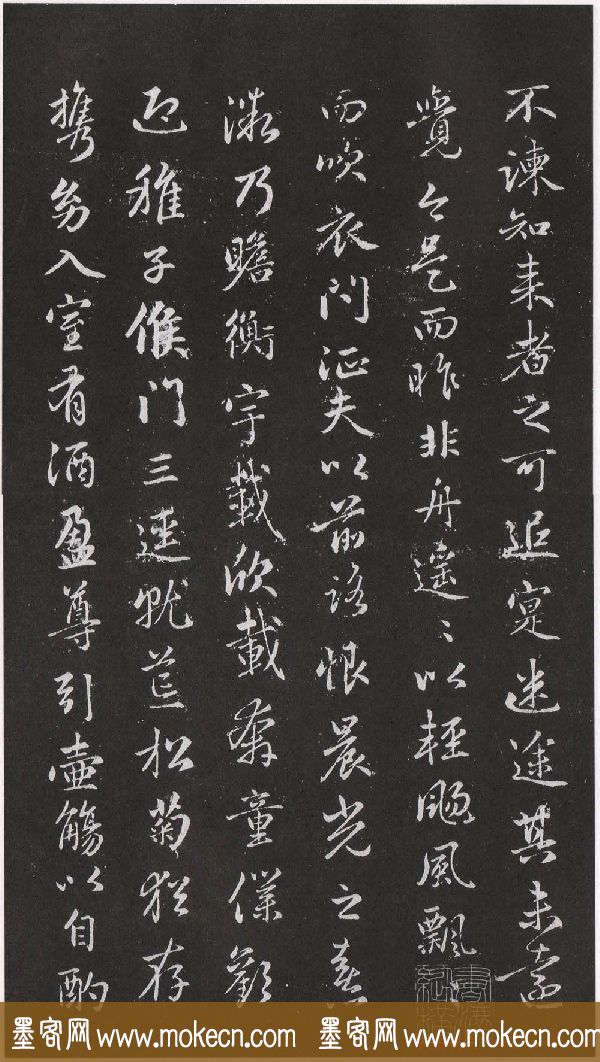 不諫知来者之可追寔迷途其未遠
覺今是而昨非舟遥〻以輕颺風飄〻
而吹衣問征夫以前路恨晨光之熹
微乃瞻衡宇載欣載奔童僕歡
迎稚子候門三逕就荒松菊猶存
攜幼入室有酒盈尊引壺觴以自酌
墨客网 www.mokecn.com 墨客网 www.mokecn.com